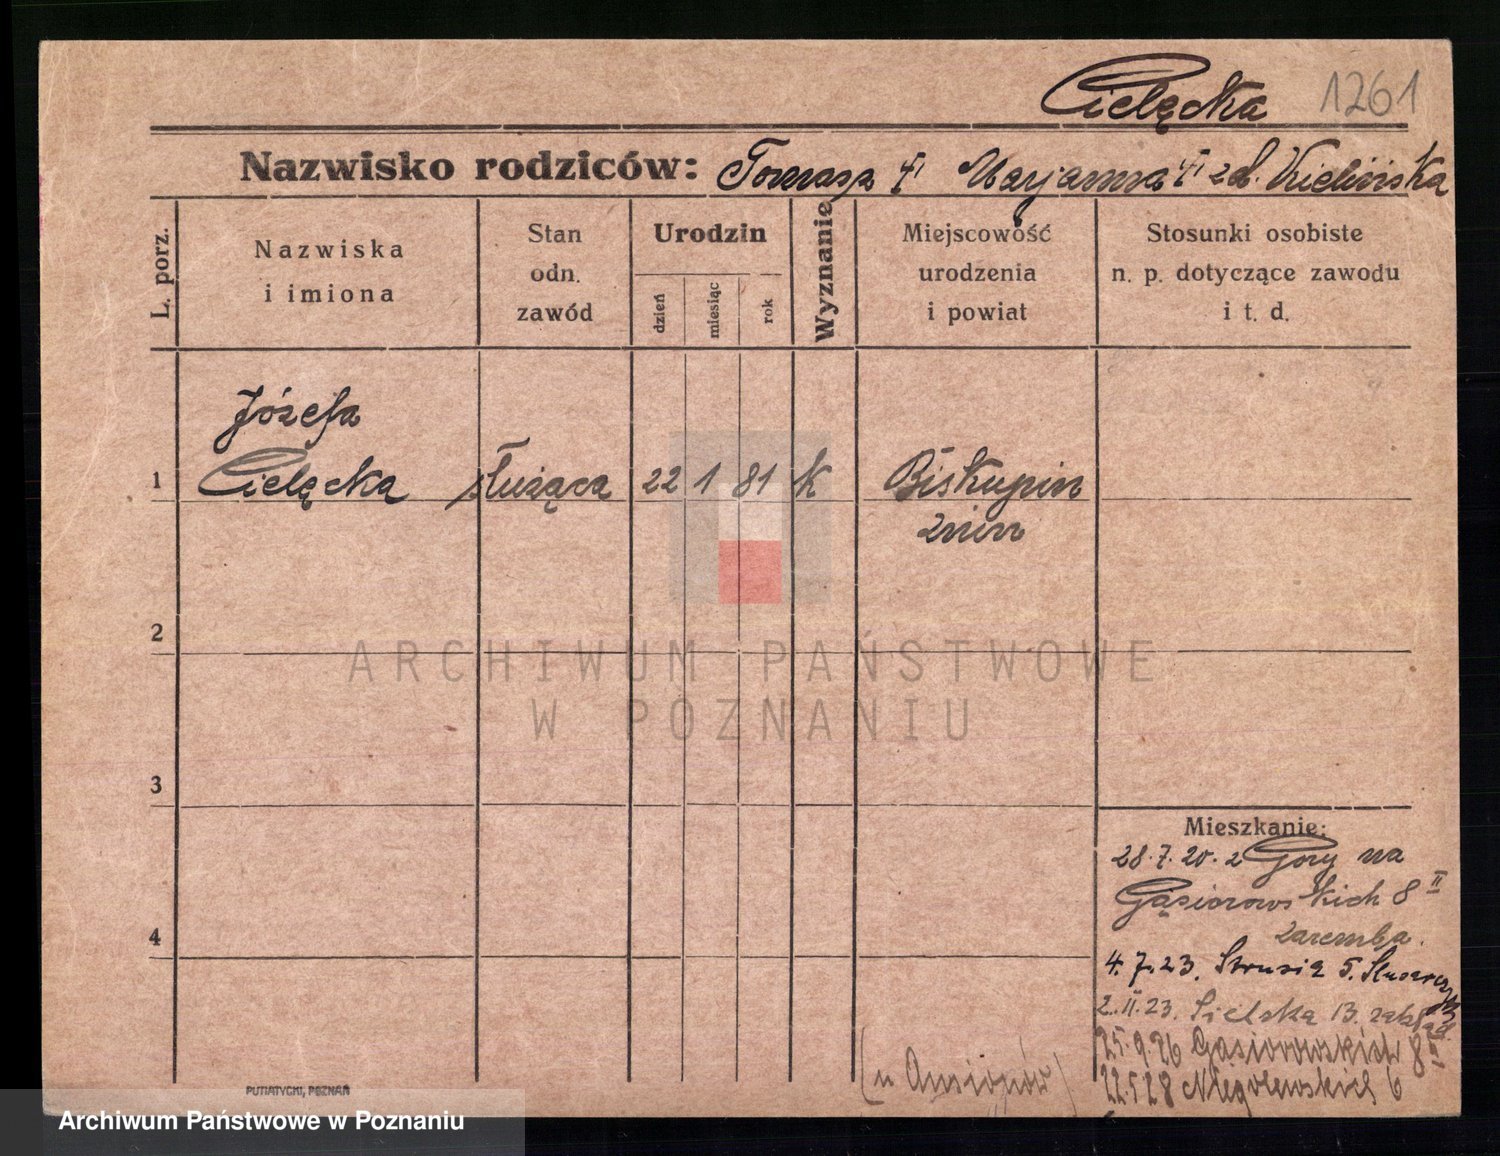 Cielęcka 1261
Nazwisko rodziców: Tomasz Marjanna zd. Kielińska
L. porz.
Nazwiska
i imiona
Stan
odn.
zawód
Urodzin
dzień
miesiąc
rok
Wyznanie
Miejscowość
urodzenia
i powiat
Stosunki osobiste
n. p. dotyczące zawodu
i t. d.
Józefa
1 Cielęcka służąca 22 1 81 k Biskupin
Żnin
2
ARCHIWUM PAŃSTWOWE
W POZNANIU
3
Mieszkanie:
28.7.20. z Góry na
Gąsiorowskich 8 II
Zaremba.
4
4.7.23. Strusia 5. Ślusarczyk
2.II.23. Sielska 13. zakład
25.9.26 Gąsiorowskich 8 II
22.5.28 Niegolewskich 6
PUTIATYCKI, POZNAŃ
Archiwum Państwowe w Poznaniu